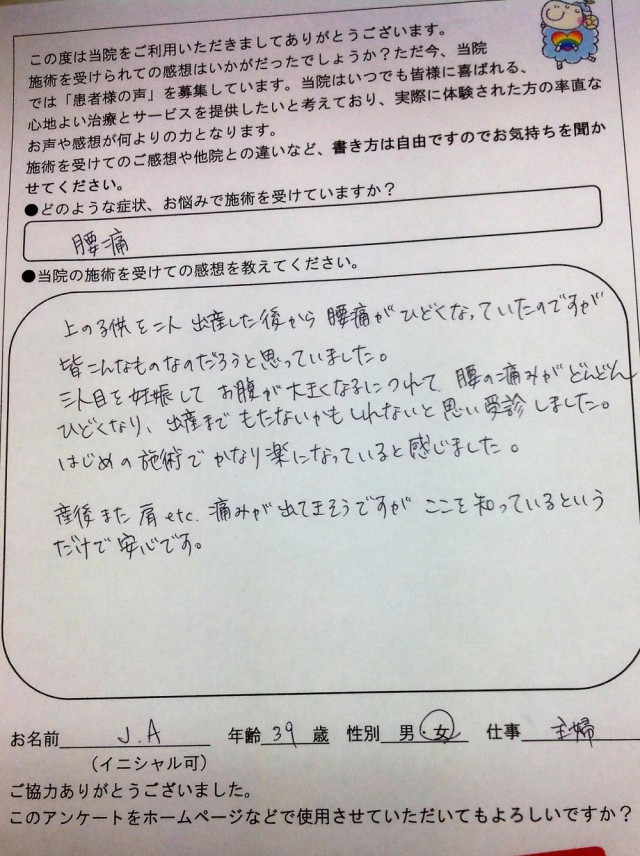 この度は当院をご利用いただきましてありがとうございます。
施術を受けられての感想はいかがだったでしょうか？ただ今、当院
では「患者様の声」を募集しています。当院はいつでも皆様に喜ばれる、
心地よい治療とサービスを提供したいと考えており、実際に体験された方の率直な
お声や感想が何よりの力となります。
施術を受けてのご感想や他院との違いなど、書き方は自由ですのでお気持ちを聞か
せてください。
●どのような症状、お悩みで施術を受けていますか？
腰痛
●当院の施術を受けての感想を教えてください。
上の子供を二人 出産した後から 腰痛が ひどくなっていたのですが
皆こんなものなのだろうと思っていました。
三人目を妊娠して お腹が 大きくなるにつれて 腰の痛みが どんどん
ひどくなり、出産まで もたないかも しれないと 思い 受診しました。
はじめの施術で かなり楽になっていると感じました。
産後また 肩etc. 痛みが 出てきそうですが ここを知っているという
だけで 安心です。
お名前 J.A 年齢 39 歳 性別 男・女 仕事 主婦
（イニシャル可）
ご協力ありがとうございました。
このアンケートをホームページなどで使用させていただいてもよろしいですか？